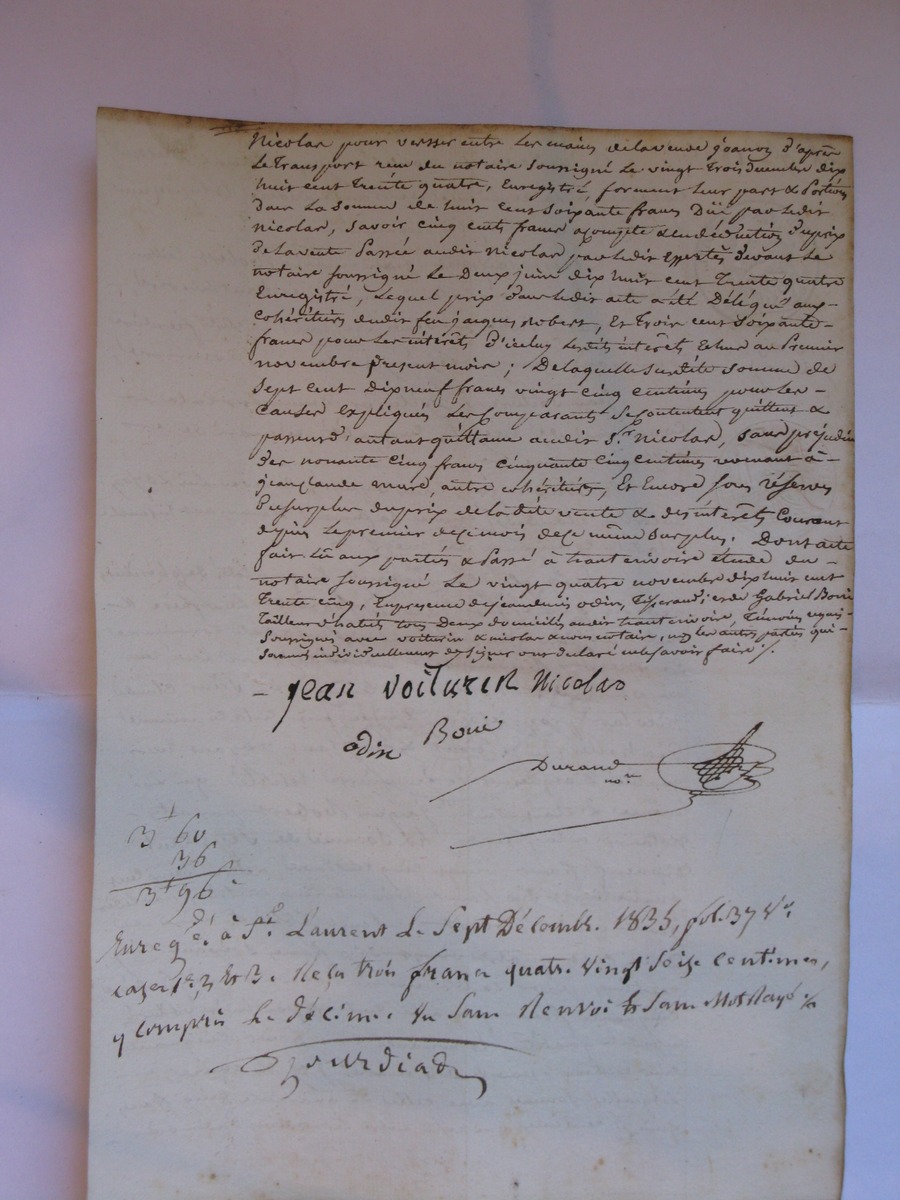 Nicolas pour verser entre les mains de la veuve joanon d'après
le transport reçu du notaire soussigné le vingt trois decembre dix
huit cent trente quatre, Enregistré, forment leur part & Portion
Dans la somme de huit cent soixante francs Düe par ledit
Nicolas, savoir cinq cents francs acompte & en déduction du prix
de la vente Passée audit Nicolas par ledit devant le
notaire soussigné le Deux juin dix huit cent Trente quatre
Enregistré, lequel prix dans ledit acte a été Délégué aux
cohéritiers dudit feu jacques Robert, Et trois cent soixante
francs pour les intérêts d'iceluy lesdits intérêts Echus au Premier
novembre Présent mois ; De laquelle susdite somme de
sept cent dix neuf francs vingt cinq centimes pour les
causes Expliqués les Comparants se contentent quittent &
passent quittance audit Sr. Nicolas, sans préjudice
des nonante cinq francs cinquante cinq centimes revenant à
jean claude mure, autre cohéritier, Et Encore sous réserves
du surplus du prix de la dite vente & des intérêts Courant
depuis le premier de ce mois de ce même surplus. Dont acte
fait lû aux partiés & Passé à Chantenivoire étude du
notaire soussigné le vingt quatre novembre dix huit cent
Trente cinq, En presence de jean denis odin, Tisserand, et de Gabriel Boui
Tailleur d'habits tous Deux domiciliés audit, Témoins requis
soussignés avec voiturin & nicolas & nous notaire, non les autres partiés qui
sommés individuellement de signer ont declaré ne le savoir faire ./.
jean voiturin Nicolas
odin Boui
Durand
nore.
3f 60
36
3f 96
Enregé. à St. Laurent le Sept Décembr. 1835, fol. 37 Vo.
cases 1re, 2 & 3. Reçu trois francs quatre. vingt Seize centimes,
y compris le décime. Un Sans Renvoi & Sans Mot Rayé ./.
Gourdiad